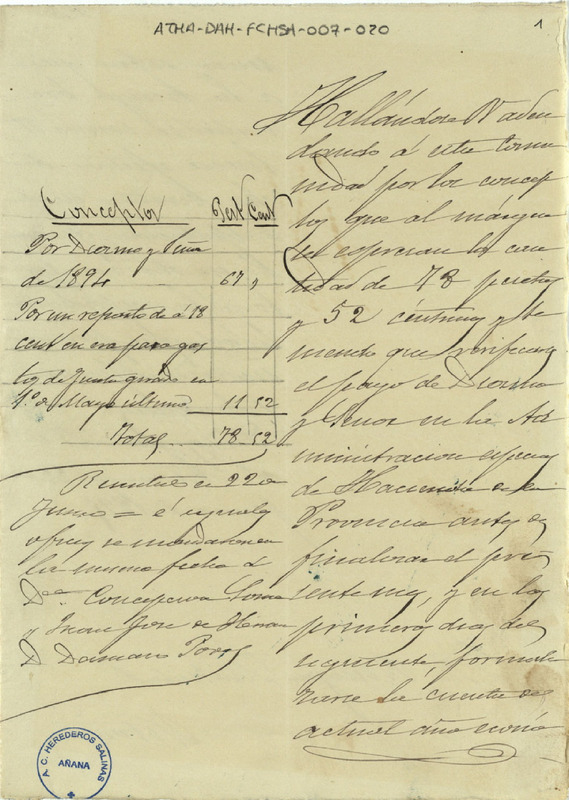 ATHA-DAH-FCHSA-007-020
1
Conceptos Pest Cent
Por Diezmo y
de 1894 67 ,
Por un reparto de á 18
cent en era para gas
tos de Junta girado en
1º de Mayo último 11 52
Total 78 52
en 22 de
Junio = é iguales
oficios se mandaron en
la misma fecha á
Dª Concepcion
y Juan Jose de
D Damaso
Hallándose V adeu
dando á esta Comu
nidad por los concep
tos que al márgen
se espresan la can
tidad de 78 pesetas
y 52 céntimos y te
niendo que verificarse
el pago de
y en la Ad
ministracion especial
de Hacienda de la
Provincia antes de
finalizar el pre
sente mes, y en los
primeros dias del
siguiente, formali
zarse la cuenta del
actual año econó
A. C. HEREDEROS SALINAS
AÑANA